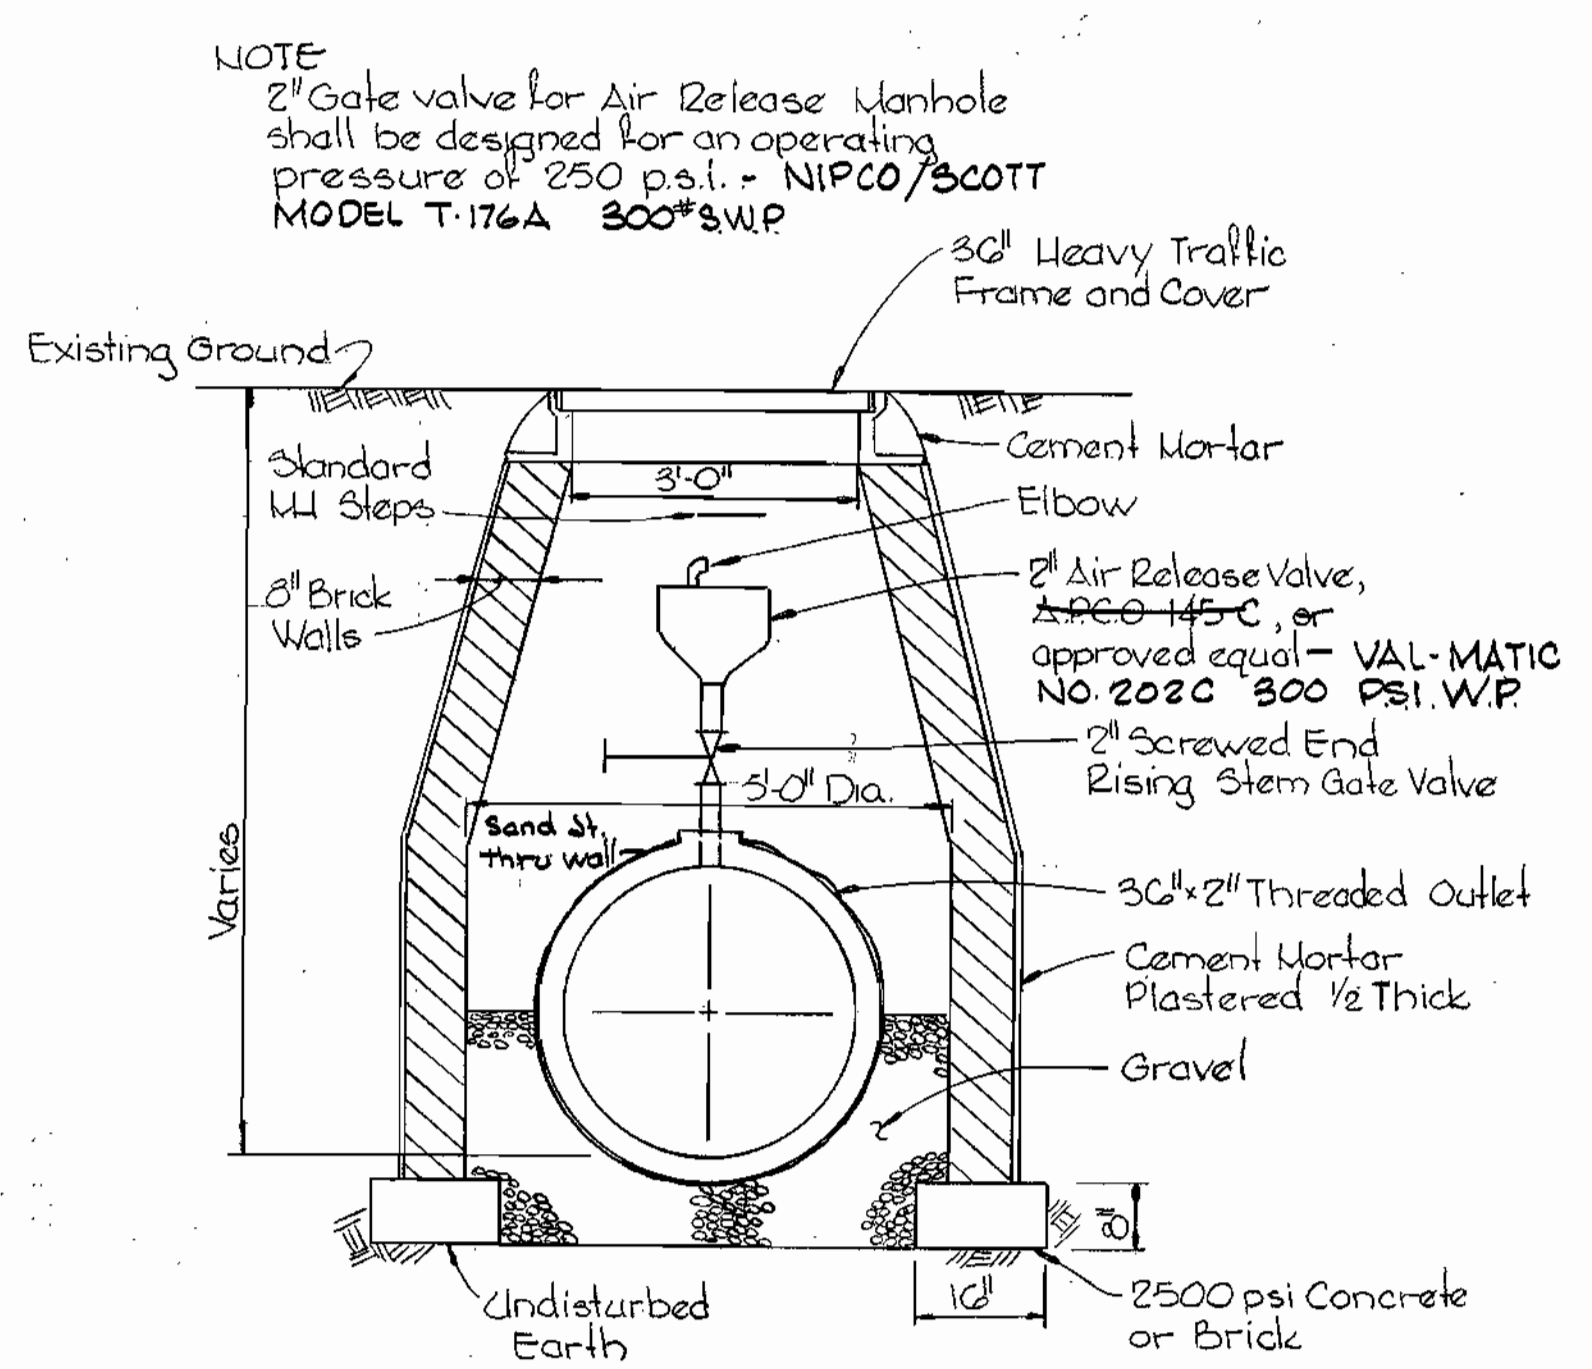 NOTE
2" Gate valve for Air Release Manhole
shall be designed for an operating
pressure of 250 p.s.i. - NIPCO/SCOTT
MODEL T-176A 300# S.W.P.
36" Heavy Traffic
Frame and Cover
Existing Ground
Cement Mortar
Standard
MH Steps
3'-0"
Elbow
8" Brick
Walls
2" Air Release Valve,
A.P.C.O 145-C, or
approved equal - VAL-MATIC
NO. 202C 300 P.S.I. W.P.
2" Screwed End
Rising Stem Gate Valve
5'-0" Dia.
Sand St.
thru wall
Varies
36"x2" Threaded Outlet
Cement Mortar
Plastered 1/2 Thick
Gravel
8"
16"
Undisturbed
Earth
2500 psi Concrete
or Brick